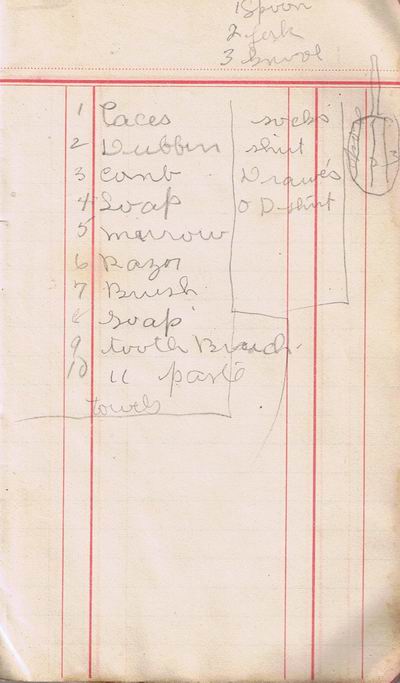 1 Spoon
2 fork
3
1 Laces
2 Dubbin
3 Comb
4 Soap
5 Mirrow
6 Razor
7 Brush
8 Soap
9 tooth Brush.
10 " paste
towels
socks
shirt
Drawes
O D shirt